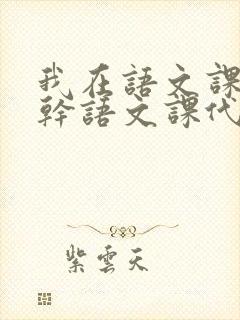 我在語文課
幹語文課代
紫雲天